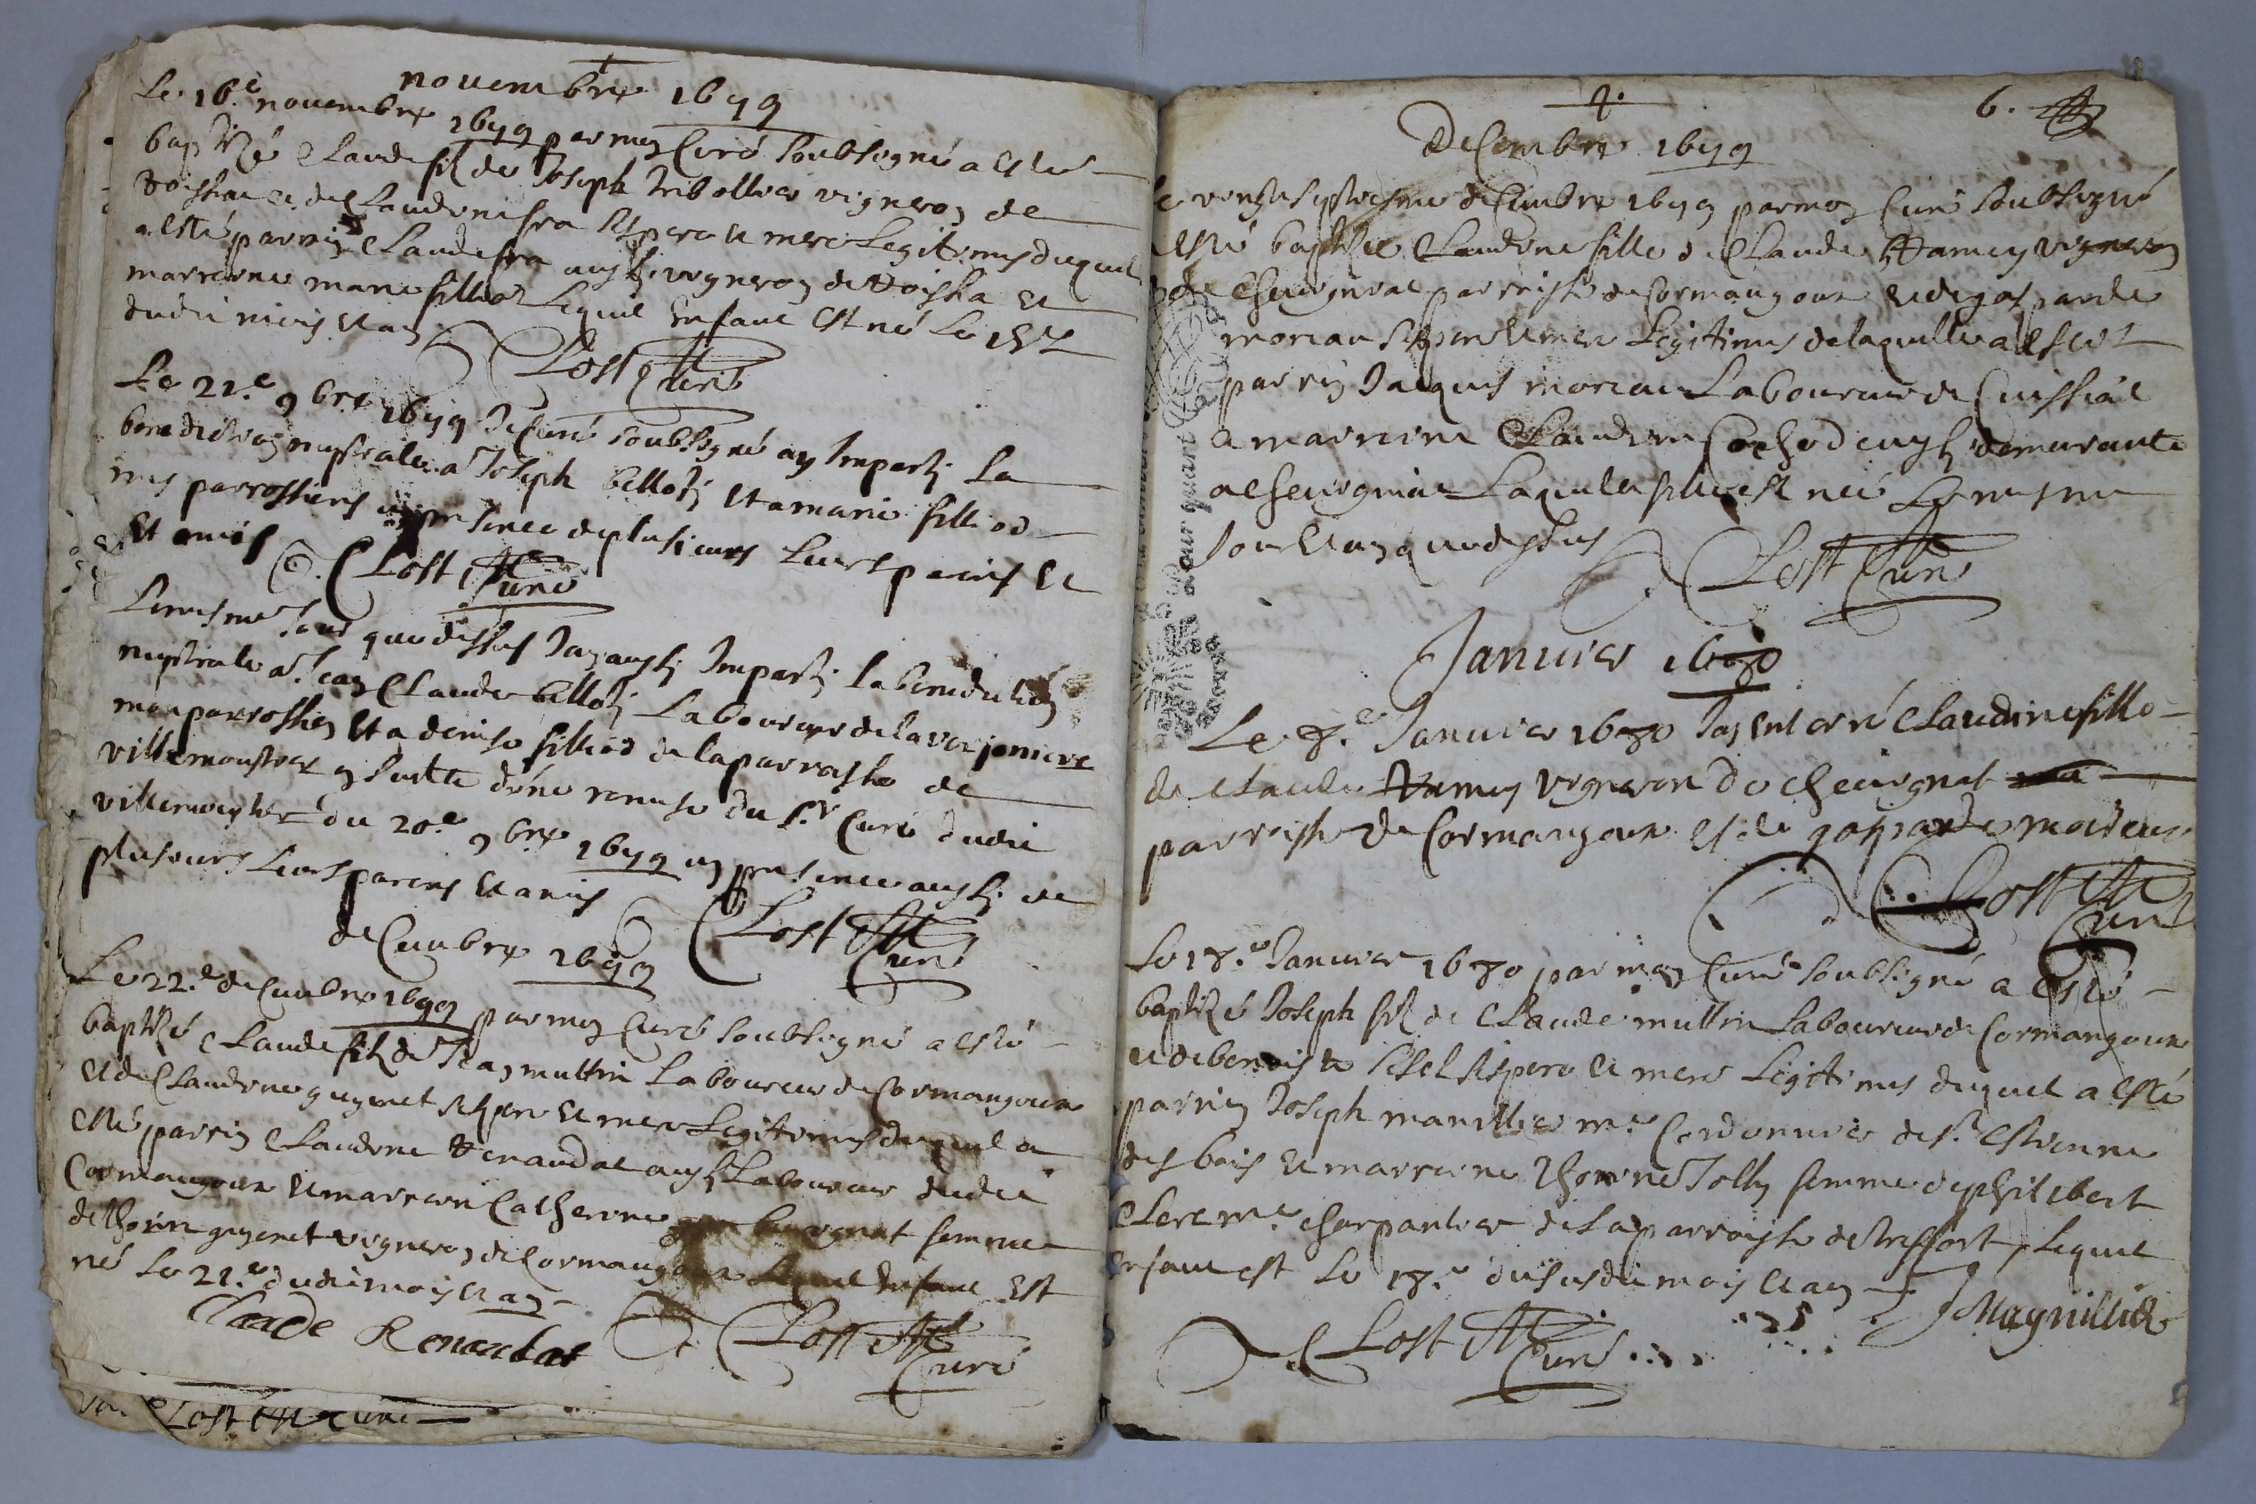 novembre 1679
Le 16.e novembre 1679 par moy Curé soubsigné a esté
baptizé Claude filz de Joseph Tribollier vigneron de
Toissia et de Claudine fra ses pere et mere Legitimes duquel
a esté parrin Claude fra aussi vigneron de Toissia et
marreine marie filliod Lequel Enfant est né Le 15.e
dudit mois et an
Lost Curé
Le 21.e 9bre 1679 Je Curé soubsigné ay Imparti La
benediction nuptiale a Joseph bellod et a marie filliod
mes parrossiens en presence de plusieurs Leurs parens et
et amis
Lost Curé
Le mesme Jour que dessus Jay aussi Imparti la benediction
nuptiale a Jean Claude bellod Laboureur de la verjoniere
mon parrossien et a denise filliod de la parroisse de
villemoustier suivte remise du S.r Curé dudit
villemoustier du 20.e 9bre 1679 en presence aussi de
plusieurs Leurs parens et amis
Lost Curé
decembre 1679
Le 22.e decembre 1679 par moy Curé soubsigné a esté
baptizé Claude filz de Jean multin Laboureur de Cormangoux
et de Claudine guyenet ses pere et mere Legitimes duquel a
esté parrin Claudine Renaudat aussi Laboureur dudit
Cormangoux et marreine Catherine femme
de guyenet vigneron de Cormangoux Lequel Enfant est
né Le 21.e dudit mois et an
Claude Renaudat
Lost Curé
Lost Curé
6.
Decembre 1679
Le vingt septiesme decembre 1679 par moy Curé soubsigné
a esté baptizée Claudine fille de Claude Ramey vigneron
de Chevignat parroisse de Cormangoux et de gasparde
moriau ses pere et mere Legitimes de laquelle a esté
parrin Jacques moriau Laboureur de Cuissiat
et marreine Claudine Cochod aussi demeurante
a Chevigniat Laquelle fille est née Le mesme
Jour et an que dessus
Lost Curé
Janvier 1680
Le 8.e Janvier 1680 Jay Enterré Claudine fille
de Claude Ramey vigneron de Chevignat
parroisse de Cormangoux et de gasparde moireau
Lost Curé
Le 18.e Janvier 1680 par moy Curé soubsigné a esté
baptizé Joseph filz de Claude multin Laboureur de Cormangoux
et de benoiste ses pere et mere Legitimes duquel a esté
parrin Joseph manillier m.e Cordonnier de S.t Estienne
des bois et marreine Jolly femme de philibert
Clerc m.e charpantier de La parroisse de treffort, Lequel
enfant est Le 18.e du susdit mois et an
J Magnillier
Lost Curé